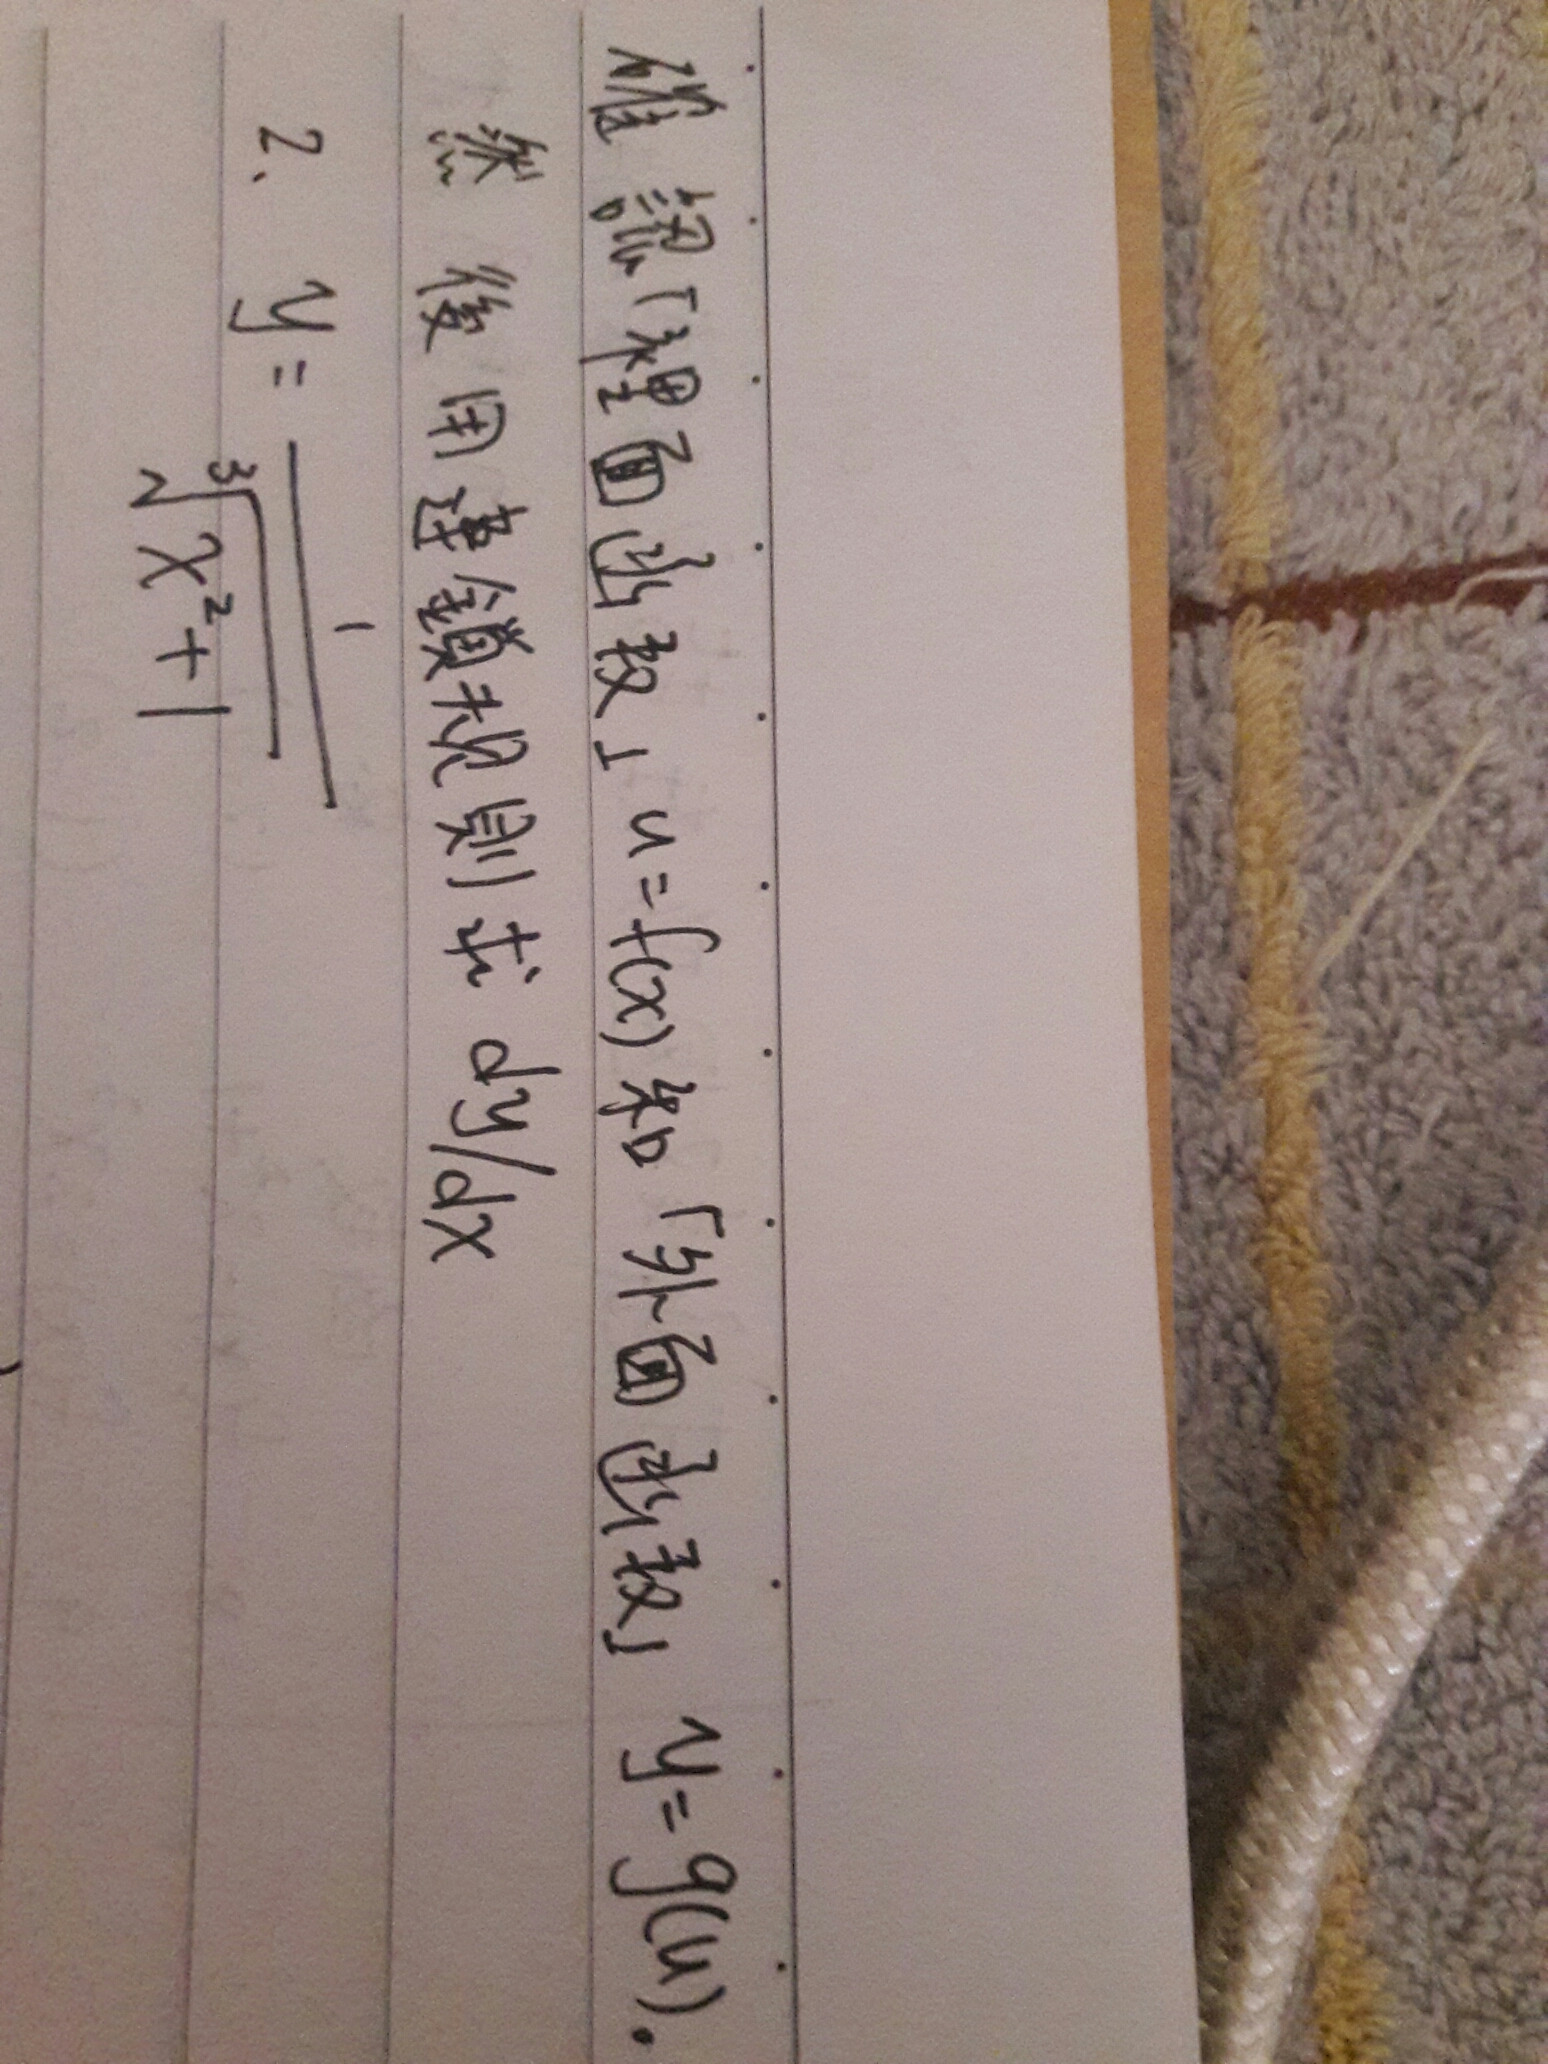 確認「裡面函数」u=f(x) 和「外面函数」y=g(u).
然後用連鎖規則求 dy/dx
2. y = 1 / ∛(x²+1)